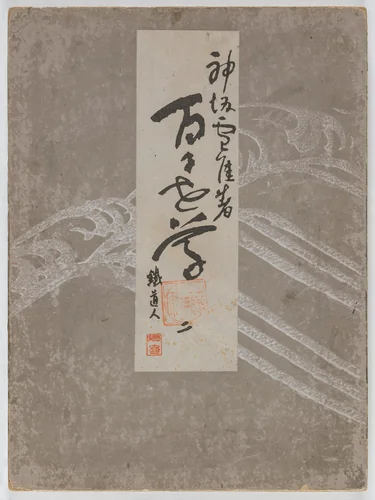 神坂雪佳著
百々世草
鐵道人
二